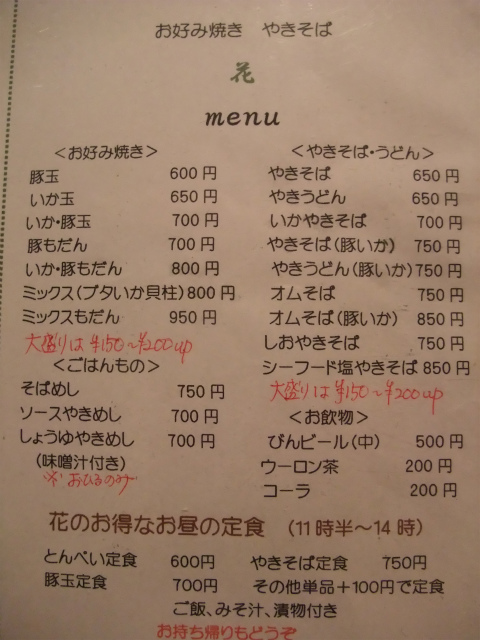 お好み焼き　やきそば
花
menu
＜お好み焼き＞
豚玉　600円
いか玉　650円
いか・豚玉　700円
豚もだん　700円
いか・豚もだん　800円
ミックス（ブタいか貝柱）800円
ミックスもだん　950円
大盛りは¥150〜¥200up
＜ごはんもの＞
そばめし　750円
ソースやきめし　700円
しょうゆやきめし　700円
（味噌汁付き）
※おひるのみ
＜やきそば・うどん＞
やきそば　650円
やきうどん　650円
いかやきそば　700円
やきそば（豚いか）　750円
やきうどん（豚いか）750円
オムそば　750円
オムそば（豚いか）　850円
しおやきそば　750円
シーフード塩やきそば 850円
大盛りは¥150〜¥200up
＜お飲物＞
びんビール（中）　500円
ウーロン茶　200円
コーラ　200円
花のお得なお昼の定食　（11時半〜14時）
とんぺい定食　600円　やきそば定食　750円
豚玉定食　700円　その他単品＋100円で定食
ご飯、みそ汁、漬物付き
お持ち帰りもどうぞ